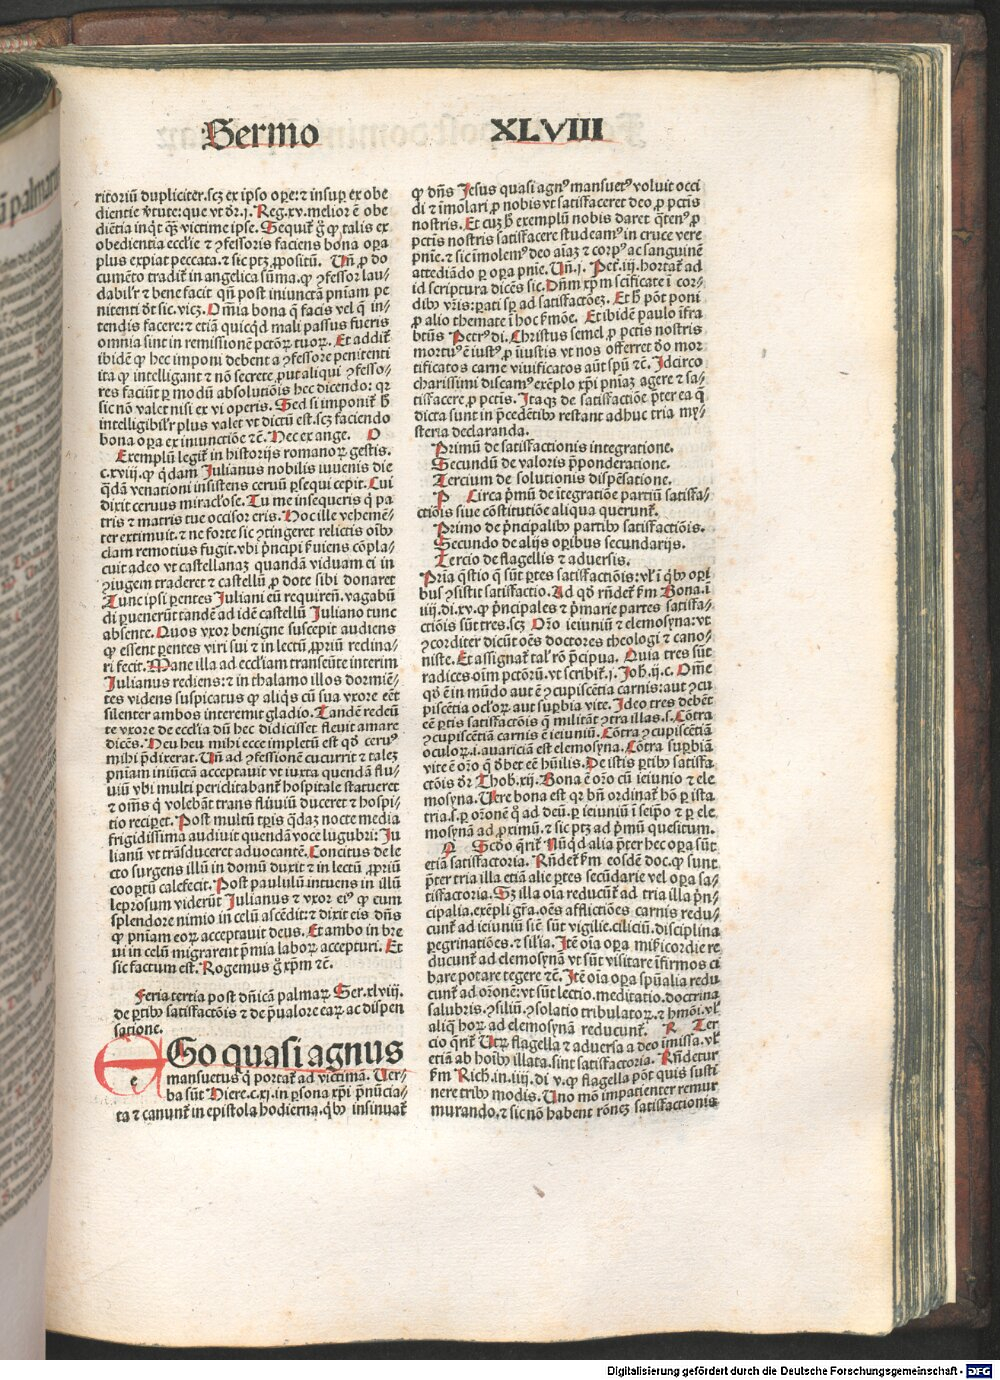 Sermo XLVIII
ritoriū dupliciter.scꝫ ex ipso oꝑe: ⁊ insuꝑ ex obe
dientie ꝟtute: que vt dr̄.j. Reg.xv. melior ē obe
diētia inq̇t q̄ꝫ victime ipse. Sequit᷑ g̊ ꝙ talis ex
obedientia eccl̓ie ⁊ ꝯfessoris faciens bona oꝑa
plus expiat peccata. ⁊ sic ptꝫ ꝓpositū. Vn̄ ꝓ do
cumēto tradit᷑ in angelica sūma. ꝙ ꝯfessor lau-
dabilr̓ ⁊ bene facit qn̄ post iniunctā pn̄iam pe
nitenti dr̄t sic. vicꝫ. Omīa bona q̄ facis vel q̄ in-
tendis facere: ⁊ etiā quicq̇d mali passus fueris
omnia sint in remissionē pctōꝝ tuoꝝ. Et addit᷑
ibidē ꝙ hec imponi debent a ꝯfessore penitenti
ita ꝙ intelligant ⁊ nō secrete ꝓut aliqui ꝯfesso-
res faciūt ꝑ modū absolutiōis hec dicendo: qꝛ
sic nō valet nisi ex vi operis. Sed si imponit᷑ h̄
intelligibilr̓ plus valet vt dictū est. scꝫ faciendo
bona oꝑa ex iniunctiōe ⁊c̄. Hec ex ange. O
Exemplū legit᷑ in historijs romanoꝝ gestis.
c.xviij. ꝙ q̇dam Julianus nobilis iuuenis die
q̄dā venationi insistens ceruū ꝑsequi cepit. Cui
dixit ceruus miracl̓ose. Tu me insequeris q̇ pa
tris ⁊ matris tue occisor eris. Hoc ille vehemē-
ter extimuit. ⁊ ne forte sic ꝯtingeret relictis oīb
clam remotius fugit. vbi pͥncipi ẜuiens cōpla-
cuit adeo vt castellanaꝫ quandā viduam ei in
ꝯiugem traderet ⁊ castellū ꝓ dote sibi donaret
Tunc ipsi ꝑentes Juliani eū requiren̄. vagabū
di ꝑuenerūt tandē ad idē castellū Juliano tunc
absente. Quos vxor benigne suscepit audiens
ꝙ essent ꝑentes viri sui ⁊ in lectū ꝓpriū reclina-
ri fecit. Mane illa ad eccl̓iam transeūte interim
Julianus rediens: ⁊ in thalamo illos dormiē-
tes videns suspicatus ꝙ aliq̇s cū sua vxore eēt
silenter ambos interemit gladio. Tandē redeū
te vxore de eccl̓ia dū hec didicisset fleuit amare
dicēs. Heu heu mihi ecce impletū est qd̓ ceruꝰ
mihi p̄dixerat. Vn̄ ad ꝯfessionē cucurrit ⁊ taleꝫ
pn̄iam iniūctā acceptauit vt iuxta quendā flu-
uiū vbi multi periclitabant᷑ hospitale statueret
⁊ om̄s q̇ volebāt trans fluuiū duceret ⁊ hospi-
tio reciꝑet. Post multū tꝑis q̇daꝫ nocte media
frigidissima audiuit quendā voce lugubri: Ju
lianū vt trāsduceret aduocantē. Concitus de le
cto surgens illū in domū duxit ⁊ in lectū ꝓpriū
cooꝑtū calefecit. Post paululū intuens in illū
leprosum viderūt Julianus ⁊ vxor eiꝰ ꝙ cum
splendore nimio in celū ascēdit: ⁊ dixit eis dn̄s
ꝙ pn̄iam eoꝝ acceptauit deus. Et ambo in bre
ui in celū migrarent p̄mia laboꝝ accepturi. Et
sic factum est. Rogemus g̊ xp̄m ⁊c̄.
Feria tertia post dn̄icā palmaꝝ Ser.xlviij.
de ꝑtib satisfactōis ⁊ de p̄ualore eaꝝ ac dispen
satione.
EGo quasi agnus
mansuetus q̇ portat᷑ ad victimā. Ver-
ba sūt Hiere.c.xj. in ꝑsona xp̄i p̄nūcia-
ta ⁊ canunt᷑ in epistola hodierna. q̇b insinuat᷑
ꝙ dn̄s Jesus quasi agnꝰ mansuetꝰ voluit occi
di ⁊ īmolari ꝓ nobis vt satisfaceret deo ꝓ pctis
nostris. Et cuꝫ h̄ exemplū nobis daret q̄tenꝰ ꝓ
pctis nostris satisfacere studeamꝰ in cruce vere
pn̄ie. ⁊ sic īmolemꝰ deo aīaꝫ ⁊ corpꝰ ac sanguinē
attediādo ꝑ oꝑa pnie. Vn̄.j. Pet᷑.iij. hortat᷑ ad
id scriptura dicēs sic. Dn̄m xp̄m sc̄ificate ī cor-
dib vr̄is: ꝑati sꝑ ad satisfactōeꝫ. Et h̄ pōt poni
ꝓ alio themate ī hoc ẜmōe. Et ibidē paulo īfra
btūs Petrꝰ di. Christus semel ꝓ pctis nostris
mortuꝰ ē iustꝰ ꝓ iniustis vt nos offerret deo mor
tificatos carne viuificatos aūt spū ⁊c̄. Idcirco
charissimi discamꝰ exēplo xp̄i pniaꝫ agere ⁊ sa-
tisfacere ꝓ pctis. Itaqꝫ de satisfactiōe p̄ter ea q̄
dicta sunt in p̄cedētib restant adhuc tria my-
steria declaranda.
Primū de satisfactionis integratione.
Secundū de valoris p̄ponderatione.
Tercium de solutionis dispēsatione.
P Circa pͥmū de ītegratiōe partiū satisfa-
ctiōis siue cōstitutiōe aliqua querunt᷑.
Primo de pͥncipalib partib satisfactiōis.
Secundo de alijs oꝑibus secundarijs.
Tercio de flagellis ⁊ aduersis.
Pͥma q̄stio q̄ sūt ꝑtes satisfactiōis: vl̓ ī q̇b oꝑi
bus ꝯsistit satisfactio. Ad qd̓ rn̄det᷑ ẜm Bona.ī
iiij.di.xv. ꝙ pͥncipales ⁊ pͥmarie partes satisfa-
ctiōis sūt tres. scꝫ Orō ieiuniū ⁊ elemosyna: vt
ꝯcorditer dicūt oēs doctores theologi ⁊ cano-
niste. Et assignat᷑ tal̓ rō p̄cipua. Quia tres sūt
radices oīm pctōrū. vt scribit᷑.j. Joh.ij.c. Om̄e
qd̓ ē in mūdo aut ē ꝯcupiscētia carnis: aut ꝯcu
piscētia ocl̓oꝝ. aut suꝑbia vite. Ideo tres debēt
eē ꝑtis satisfactōis q̄ militāt ꝯtra illas. s. Cōtra
ꝯcupiscētiā carnis ē ieiuniū. Cōtra ꝯcupiscētiā
oculoꝝ.i. auariciā est elemosyna. Cōtra suꝑbiā
vite ē orō q̄ dʒbet eē hūilis. De istis ꝑtib satisfa
ctōis dr̄ Thob.xij. Bona ē orō cū ieiunio ⁊ ele
mosyna. Vere bona est qꝛ bn̄ ordinat᷑ hō ꝑ ista
tria. s. ꝑ orōnē q̄ ad deū. ꝑ ieiuniū ī seipō ⁊ ꝑ ele
mosynā ad ꝓximū. ⁊ sic ptꝫ ad pͥmū quesitum.
Q Scd̓o q̄rit᷑ Nūq̇d alia p̄ter hec oꝑa sūt
etiā satisfactoria. Rn̄det᷑ ẜm eosdē doc. ꝙ sunt
p̄ter tria illa etiā alie ꝑtes secūdarie vel oꝑa sa-
tisfactoria. Sꝫ illa oīa reducūt᷑ ad tria illa pͥn-
cipalia. exēpli gr̄a. oēs afflictiōes carnis redu-
cunt᷑ ad ieiuniū sic sūt vigilie. ciliciū. disciplina
ꝑegrinatiōes. ⁊ sil̓ia. Itē oīa oꝑa miẜicordie re
ducunt᷑ ad elemosynā vt sūt visitare īfirmos ci
bare potare tegere ⁊c̄. Itē oīa oꝑa spūalia redu
cunt᷑ ad orōnē: vt sūt lectio. meditatio. doctrina
salubris. ꝯsiliū. ꝯsolatio tribulatoꝝ. ⁊ hmōi. vl̓
aliq̇ hoꝝ ad elemosynā reducunt᷑. R Ter
cio q̄rit᷑ Utꝝ flagella ⁊ aduersa a deo īmissa. vl̓
etiā ab hoīb illata. sint satisfactoria. Rn̄detur
ẜm Rich.in.iiij.di.v. ꝙ flagella pōt quis susti
nere trib modis. Uno mō impatienter remur
murando. ⁊ sic nō habent rōneꝫ satisfactionis
Digitalisierung gefördert durch die Deutsche Forschungsgemeinschaft - DFG